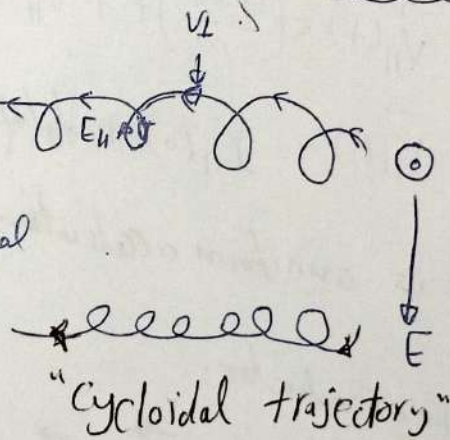 V⊥
E
al
E
"Cycloidal trajectory"